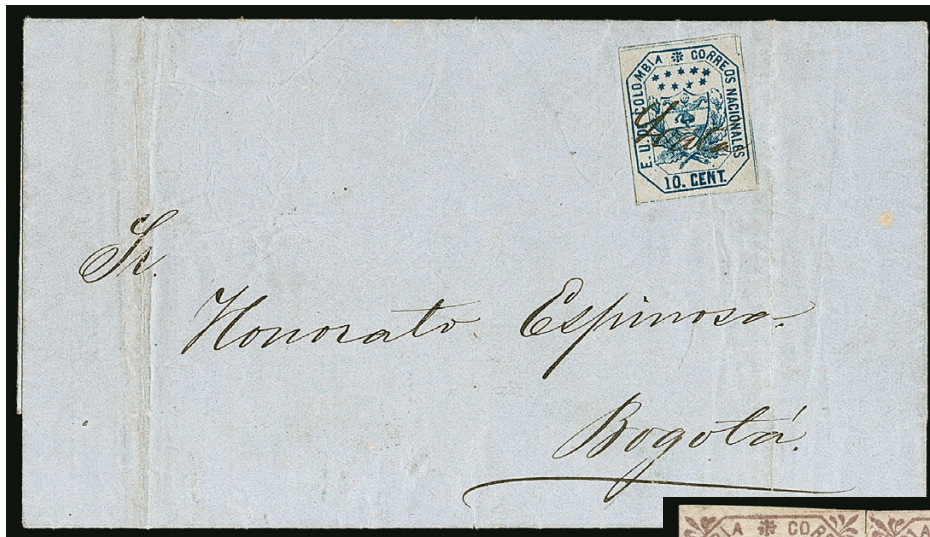 E. U. DE COLOMBIA * CORREOS NACIONALES
10. CENT.
Sr.
Honorato Espinosa.
Bogotá.
IA * CO